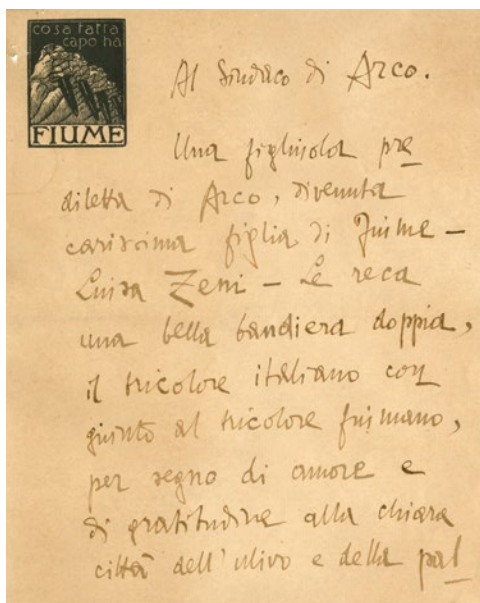 cosa fatta
capo ha
FIUME
Al Sindaco di Arco.
Una figliuola pre
diletta di Arco, divenuta
carissima figlia di Fiume –
Luisa Zeni – Le reca
una bella bandiera doppia,
il tricolore italiano con
giunto al tricolore fiumano,
per segno di amore e
di gratitudine alla chiara
città dell'ulivo e della pal